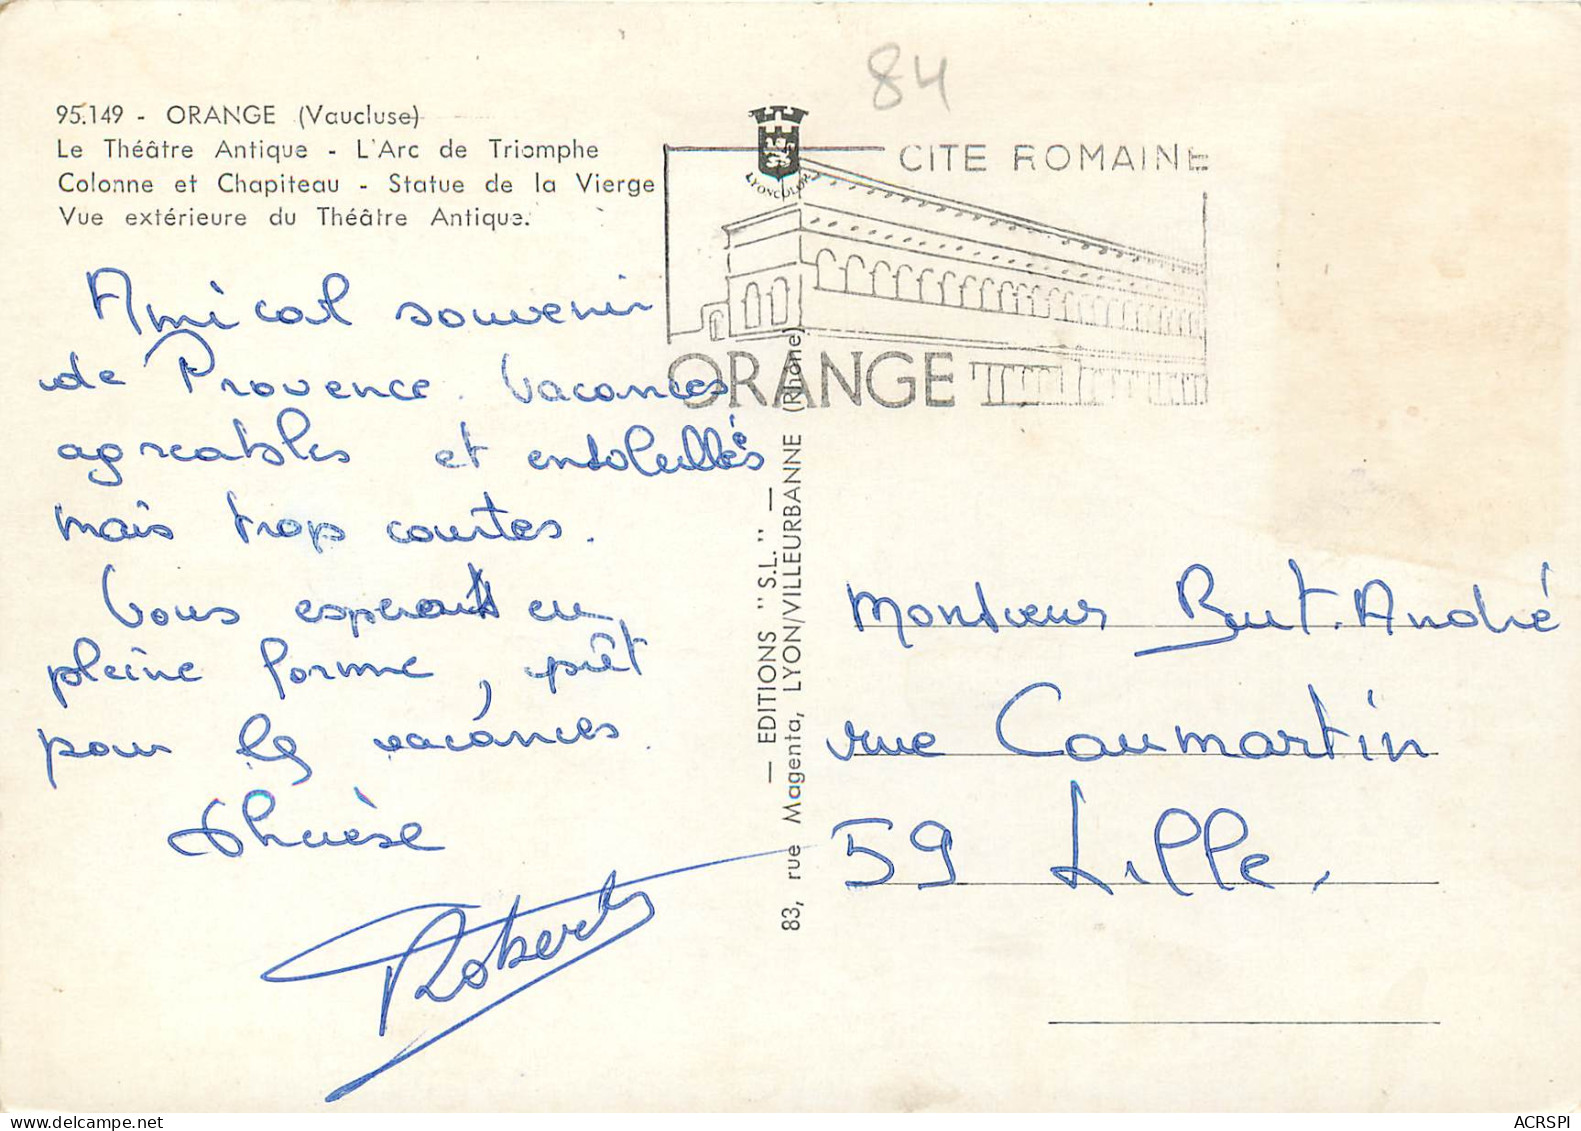 84
95.149 - ORANGE (Vaucluse)
Le Théâtre Antique - L'Arc de Triomphe
Colonne et Chapiteau - Statue de la Vierge
Vue extérieure du Théâtre Antique.
LYONCOLOR
CITE ROMAINE
ORANGE
Amical souvenir
de Provence. Vacances
agreables et ensoleillés
mais trop courtes.
Vous esperant en
pleine forme, prêt
pour les vacances.
Thérèse
Robert
— EDITIONS "S.L." —
83, rue Magenta, LYON/VILLEURBANNE (Rhône)
Monsieur But. André
rue Caumartin
59 Lille.
ACRSPI